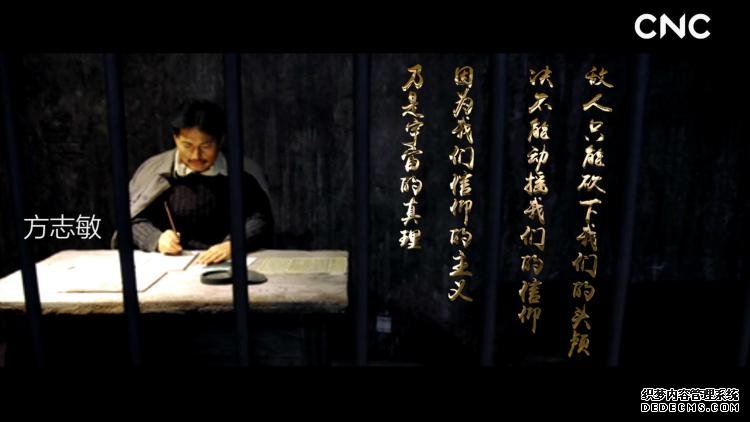 CNC
敌人只能砍下我们的头颅
决不能动摇我们的信仰
因为我们信仰的主义
乃是宇宙的真理
方志敏
织梦内容管理系统
DEDECMS.COM